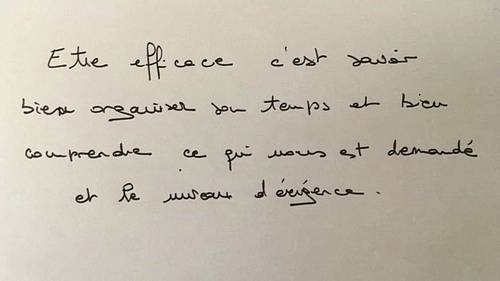 Etre efficace c'est savoir
bien organiser son temps et bien
comprendre ce qui nous est demandé
et le niveau d'éxigence.